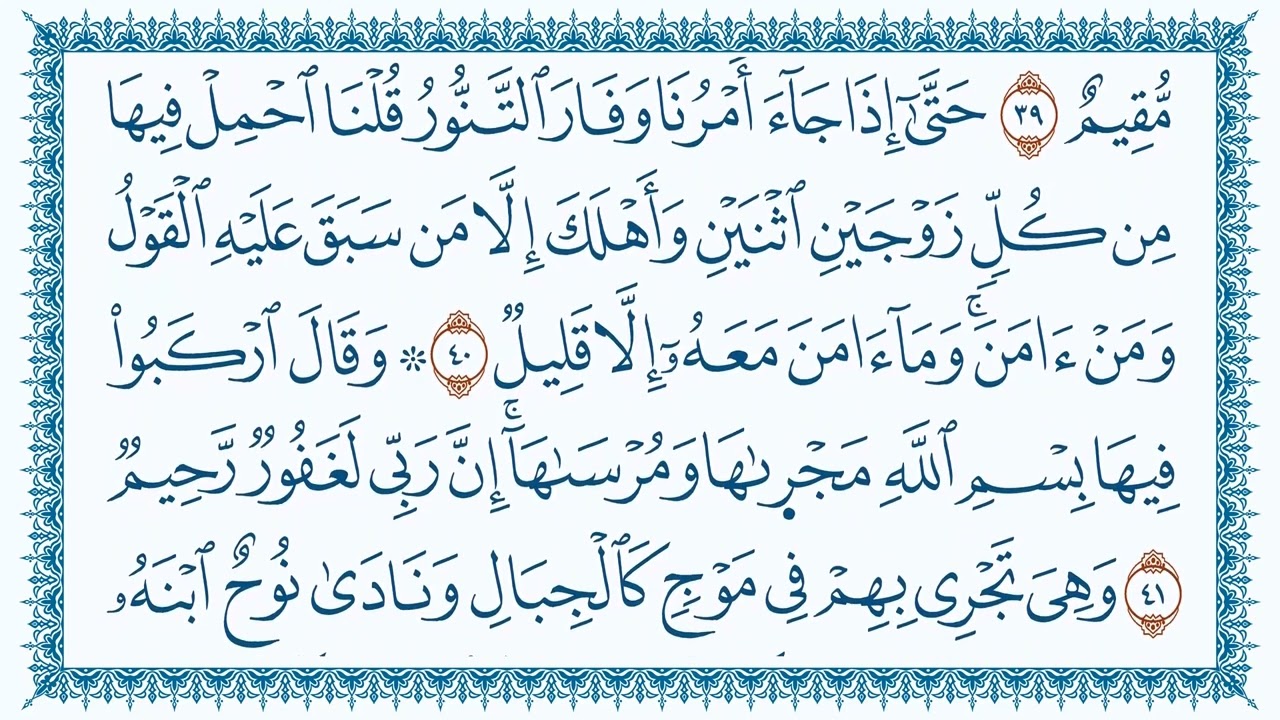 مُّقِيمٌ ٣٩ حَتَّىٰٓ إِذَا جَآءَ أَمْرُنَا وَفَارَ ٱلتَّنُّورُ قُلْنَا ٱحْمِلْ فِيهَا
مِن كُلٍّ زَوْجَيْنِ ٱثْنَيْنِ وَأَهْلَكَ إِلَّا مَن سَبَقَ عَلَيْهِ ٱلْقَوْلُ
وَمَنْ ءَامَنَ ۚ وَمَآ ءَامَنَ مَعَهُۥٓ إِلَّا قَلِيلٌ ٤٠ ۞ وَقَالَ ٱرْكَبُوا۟
فِيهَا بِسْمِ ٱللَّهِ مَجْر۪ىٰهَا وَمُرْسَىٰهَآ ۚ إِنَّ رَبِّى لَغَفُورٌ رَّحِيمٌ
٤١ وَهِىَ تَجْرِى بِهِمْ فِى مَوْجٍ كَٱلْجِبَالِ وَنَادَىٰ نُوحٌ ٱبْنَهُۥ